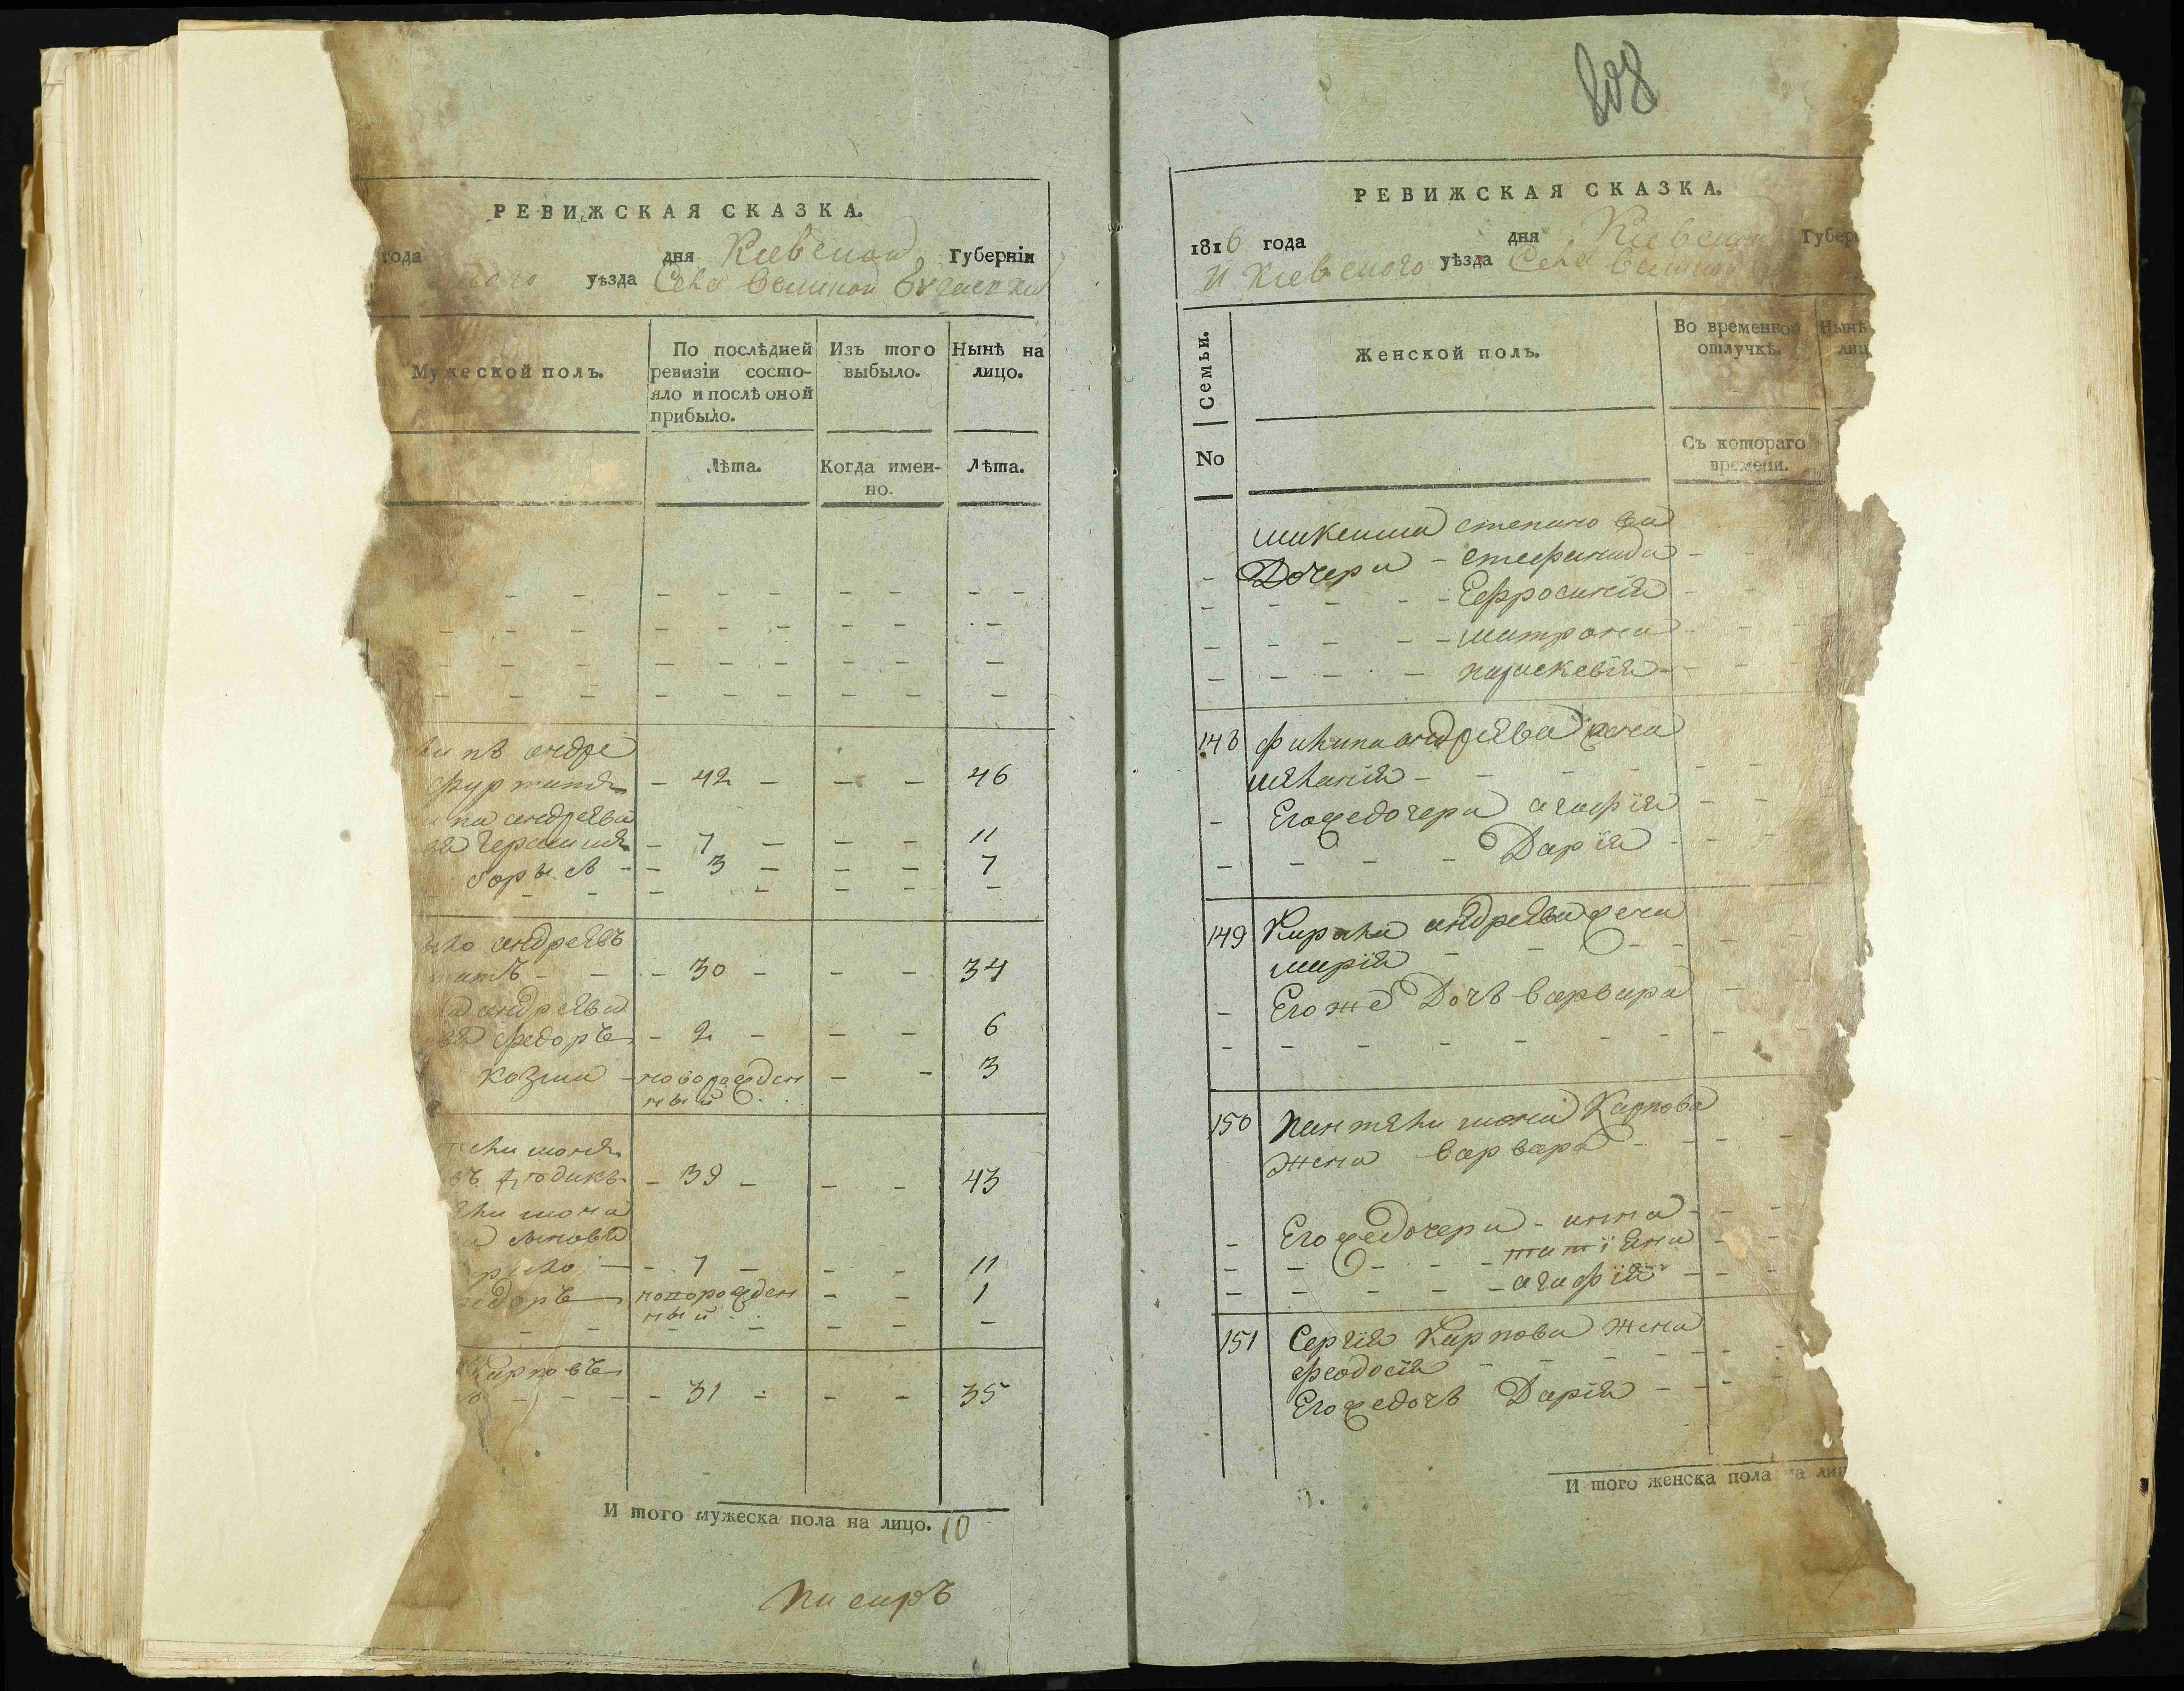 РЕВИЖСКАЯ СКАЗКА.
года дня Киевской Губернїи
уѣзда Села Великой Бугаевки
Мужеской полъ.
По послѣдней ревизїи состо-
яло и послѣ оной
прибыло.
Изъ того
выбыло.
Нынѣ на
лицо.
Лѣта.
Когда имен-
но.
Лѣта.
андре
- 42 - - - 46
андрѣева
- 7 - - - 11
борысъ - - 3 - - - 7
андреѣвъ
- 30 - - - 34
андрѣева
федоръ - 2 - - - 6
козма - новорожден - - 3
ный
- 39 - - - 43
сыновья
- 7 - - - 11
новорожден - - 1
ный
Карповъ
- 31 - - - 35
И того мужеска пола на лицо. 10
писаръ
208
РЕВИЖСКАЯ СКАЗКА.
1816 года дня Киевской Губер
И Киевского уѣзда Села Великой
Семьи.
No
Женской полъ.
Во временной
отлучкѣ.
Нынѣ
лиц
Съ котораго
времени.
степанова
Дочери - стефанида -
- Ефросинїя -
- матрона -
- параскевїя -
148 филипа андрѣева жена
мѣланїя -
Егожедочери агафїя - -
- Дарїя - -
149 Кирила андрѣева жена
марїя -
Егоже Дочь варвара -
150 пантѣлимона Карпова
жена варвара -
Егожедочери - анна -
- татїяна -
- агафїя -
151 Сергїя Карпова жена
феодосїя -
Егожедочь Дарїя - -
И того женска пола на лиц